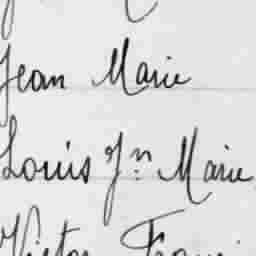 Jean Marie
Louis Jn Marie
Victor Franç